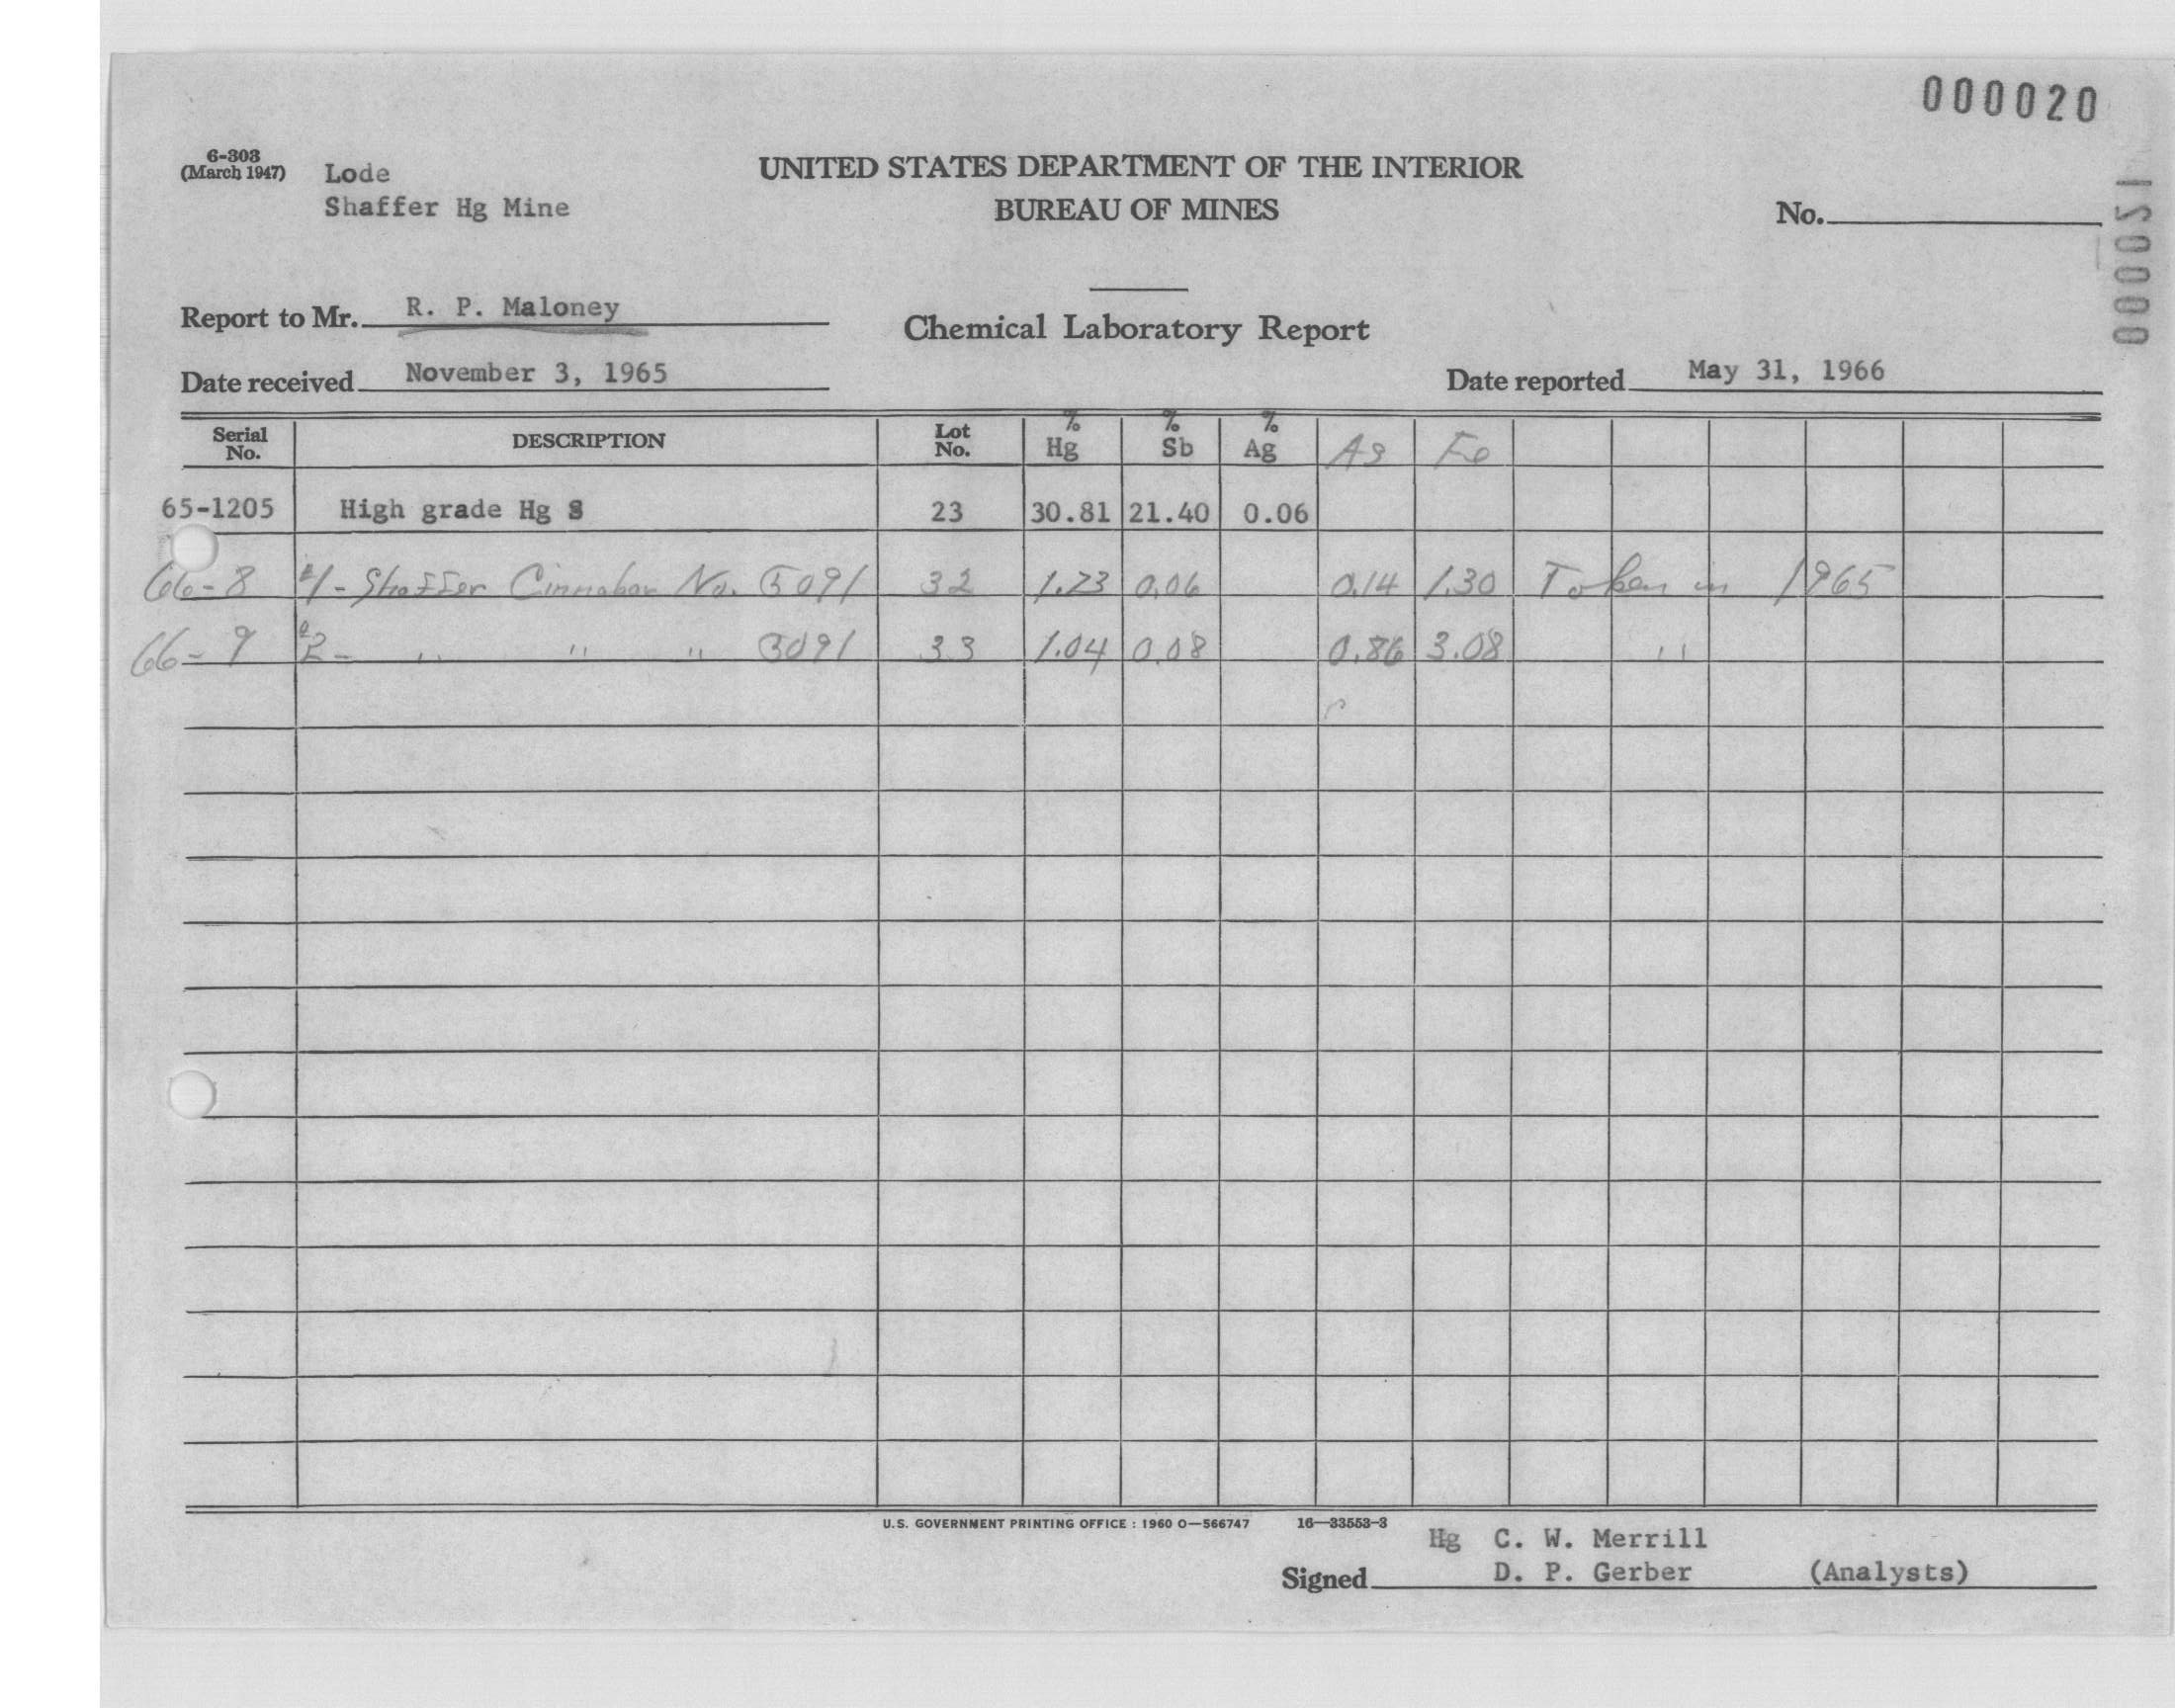 000020
000021
6-303
(March 1947)
Lode
Shaffer Hg Mine
UNITED STATES DEPARTMENT OF THE INTERIOR
BUREAU OF MINES
No.
Report to Mr. R. P. Maloney
Chemical Laboratory Report
Date received November 3, 1965
Date reported May 31, 1966
Serial No. DESCRIPTION Lot No. % Hg % Sb % Ag As Fe
65-1205 High grade Hg S 23 30.81 21.40 0.06
66-8 #1- Shaffer Cinnabar No. 5091 32 1.23 0.06 0.14 1.30 Taken in 1965
66-9 #2- " " " 5091 33 1.04 0.08 0.86 3.08 "
U.S. GOVERNMENT PRINTING OFFICE : 1960 O—566747 16—33553-3
Hg C. W. Merrill
Signed D. P. Gerber (Analysts)